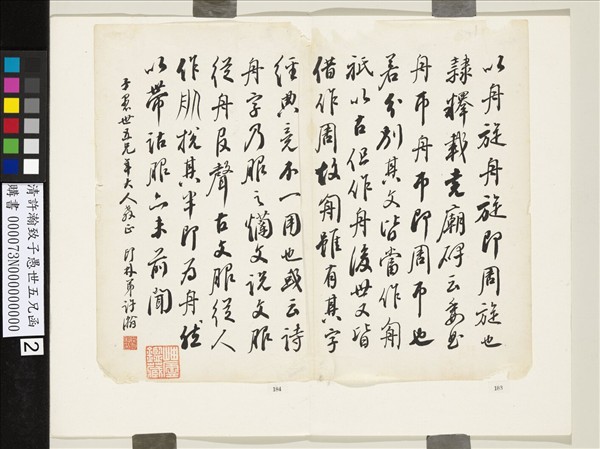 以舟旋舟旋即周旋也
隸釋載堯廟碑云委曲
舟帀舟帀即周帀也
若分別其文皆當作
祇以古但作舟後世又皆
借作周故雖有其字
經典竟不一用也或云詩
舟字乃服之爛文說文服
從舟𠬝聲古文服從人
作挩其半即為舟然
以帶詁服亦未前聞
子愚世五兄年大人教正 印林弟許瀚
184
183
清許瀚致子愚世五兄函
購書 000073N000000000
2